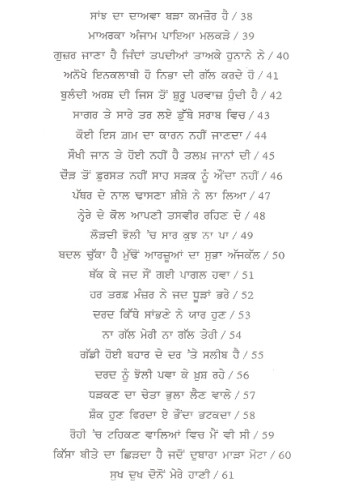 ਸਾਂਝ ਦਾ ਦਾਅਵਾ ਬੜਾ ਕਮਜ਼ੋਰ ਹੈ / 38
ਮਾਅਰਕਾ ਅੰਜਾਮ ਪਾਇਆ ਮਲਕੜੇ / 39
ਗੁਜ਼ਰ ਜਾਣਾ ਹੈ ਜਿੰਦਾਂ ਤਪਦੀਆਂ ਤਾਅਕੇ ਹੁਨਾਨੇ ਨੇ / 40
ਅਨੋਖੇ ਇਨਕਲਾਬੀ ਹੋ ਨਿਭਾ ਦੀ ਗੱਲ ਕਰਦੇ ਹੋ / 41
ਬੁਲੰਦੀ ਅਰਸ਼ ਦੀ ਜਿਸ ਤੋਂ ਸ਼ੁਰੂ ਪਰਵਾਜ਼ ਹੁੰਦੀ ਹੈ / 42
ਸਾਗਰ ਤੇ ਸਾਰੇ ਤਰ ਲਏ ਡੁੱਬੇ ਸਰਾਬ ਵਿਚ / 43
ਕੋਈ ਇਸ ਗ਼ਮ ਦਾ ਕਾਰਨ ਨਹੀਂ ਜਾਣਦਾ / 44
ਸੌਖੀ ਜਾਨ ਤੇ ਹੋਈ ਨਹੀਂ ਹੈ ਤਲਖ਼ ਜਾਨਾਂ ਦੀ / 45
ਦੌੜ ਤੋਂ ਫ਼ੁਰਸਤ ਨਹੀਂ ਸਾਹ ਸੜਕ ਨੂੰ ਔਂਦਾ ਨਹੀਂ / 46
ਪੱਥਰ ਦੇ ਨਾਲ ਢਾਸਣਾ ਸ਼ੀਸ਼ੇ ਨੇ ਲਾ ਲਿਆ / 47
ਨ੍ਹੇਰੇ ਦੇ ਕੋਲ ਆਪਣੀ ਤਸਵੀਰ ਰਹਿਣ ਦੇ / 48
ਲੋੜਦੀ ਝੋਲੀ 'ਚ ਸਾਰ ਕੁਝ ਨਾ ਪਾ / 49
ਬਦਲ ਚੁੱਕਾ ਹੈ ਮੁੱਢੋਂ ਆਰਜ਼ੂਆਂ ਦਾ ਸੁਭਾ ਅੱਜਕੱਲ / 50
ਥੱਕ ਕੇ ਜਦ ਸੌਂ ਗਈ ਪਾਗਲ ਹਵਾ / 51
ਹਰ ਤਰਫ਼ ਮੰਜ਼ਰ ਨੇ ਜਦ ਧੂੜਾਂ ਭਰੇ / 52
ਦਰਦ ਕਿੱਥੇ ਸਾਂਭਣੇ ਨੇ ਯਾਰ ਹੁਣ / 53
ਨਾ ਗੱਲ ਮੇਰੀ ਨਾ ਗੱਲ ਤੇਰੀ / 54
ਗੱਡੀ ਹੋਈ ਬਹਾਰ ਦੇ ਦਰ 'ਤੇ ਸਲੀਬ ਹੈ / 55
ਦਰਦ ਨੂੰ ਝੋਲੀ ਪਵਾ ਕੇ ਖ਼ੁਸ਼ ਰਹੇ / 56
ਧੜਕਣ ਦਾ ਚੇਤਾ ਭੁਲਾ ਲੈਣ ਵਾਲੇ / 57
ਸ਼ੌਕ ਹੁਣ ਫਿਰਦਾ ਏ ਭੌਂਦਾ ਭਟਕਦਾ / 58
ਰੌਹੀ 'ਚ ਟਹਿਕਣ ਵਾਲਿਆਂ ਵਿਚ ਮੈਂ ਵੀ ਸੀ / 59
ਕਿੱਸਾ ਬੀਤੇ ਦਾ ਛਿੜਦਾ ਹੈ ਜਦੋਂ ਦੁਬਾਰਾ ਮਾੜਾ ਮੋਟਾ / 60
ਸੁਖ ਦੁਖ ਦੋਨੋਂ ਮੇਰੇ ਹਾਣੀ / 61